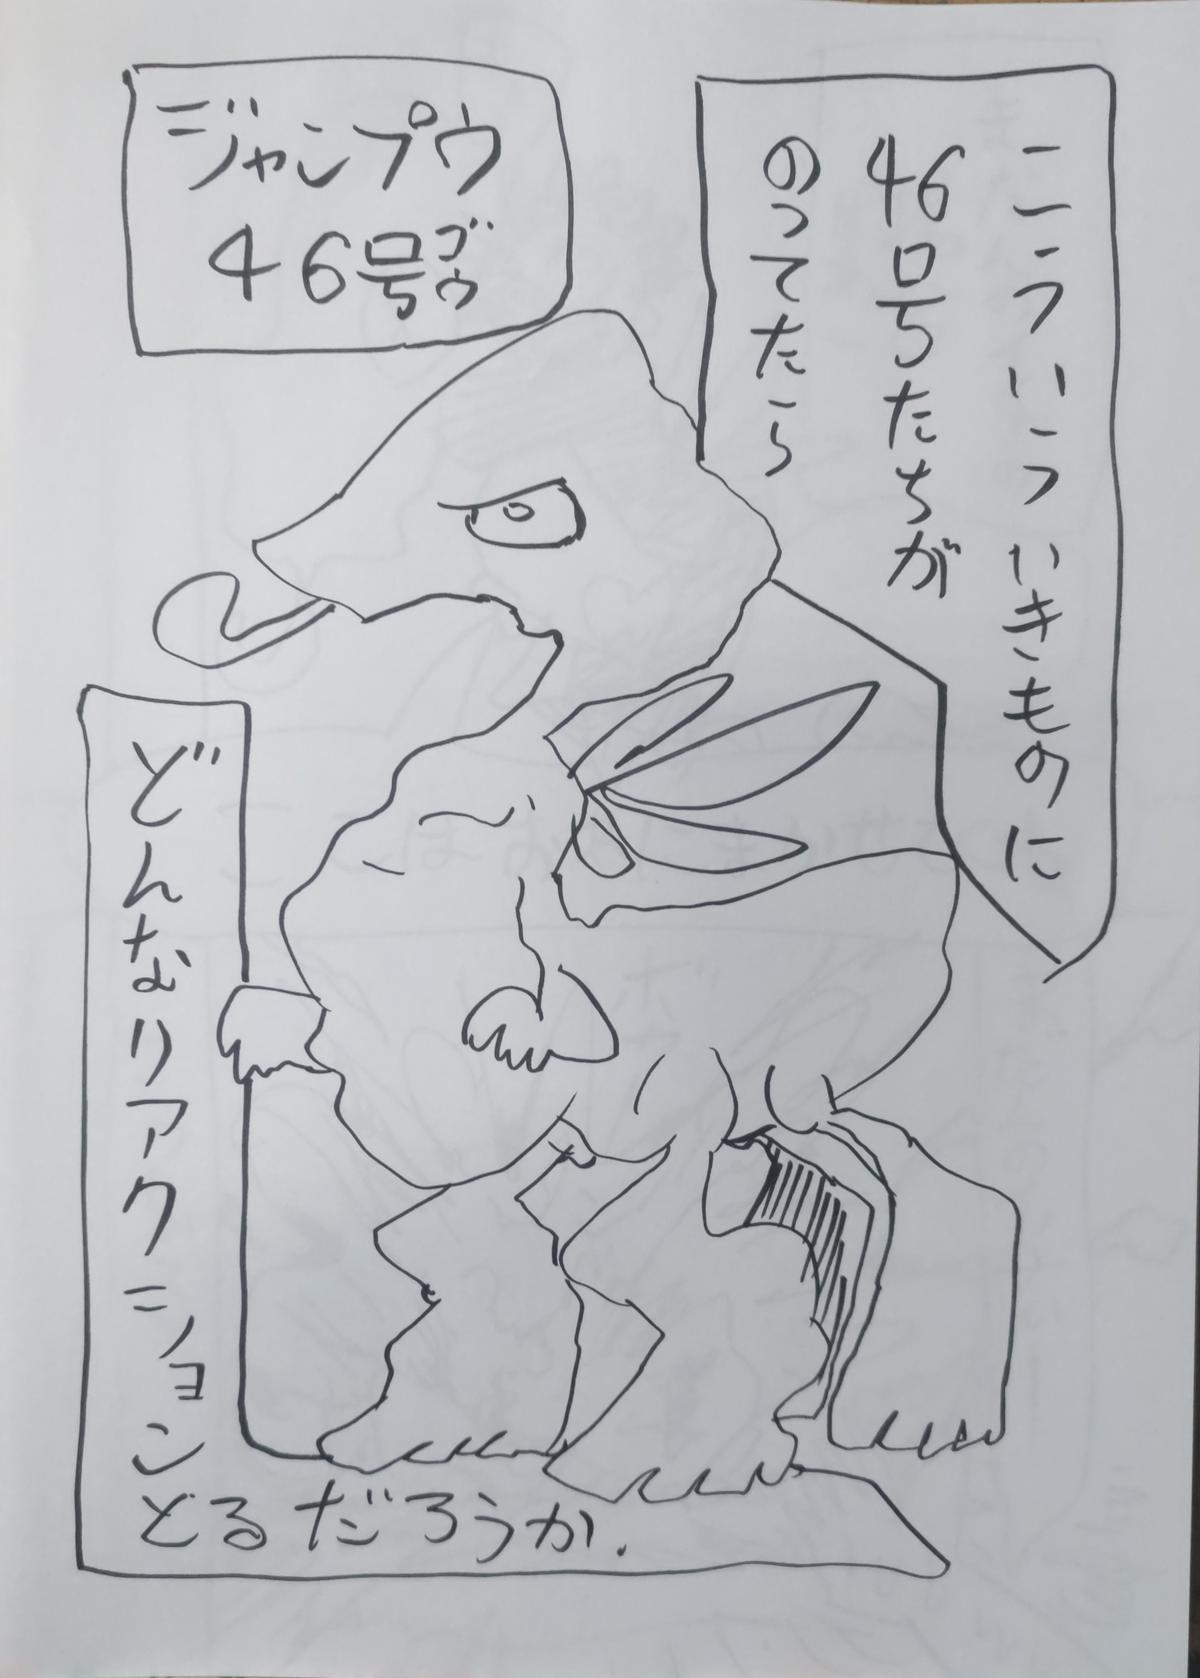 ジャンプウ
46号ゴウ
こういういきものに
46号たちが
のってたら
どんなリアクション
とるだろうか.